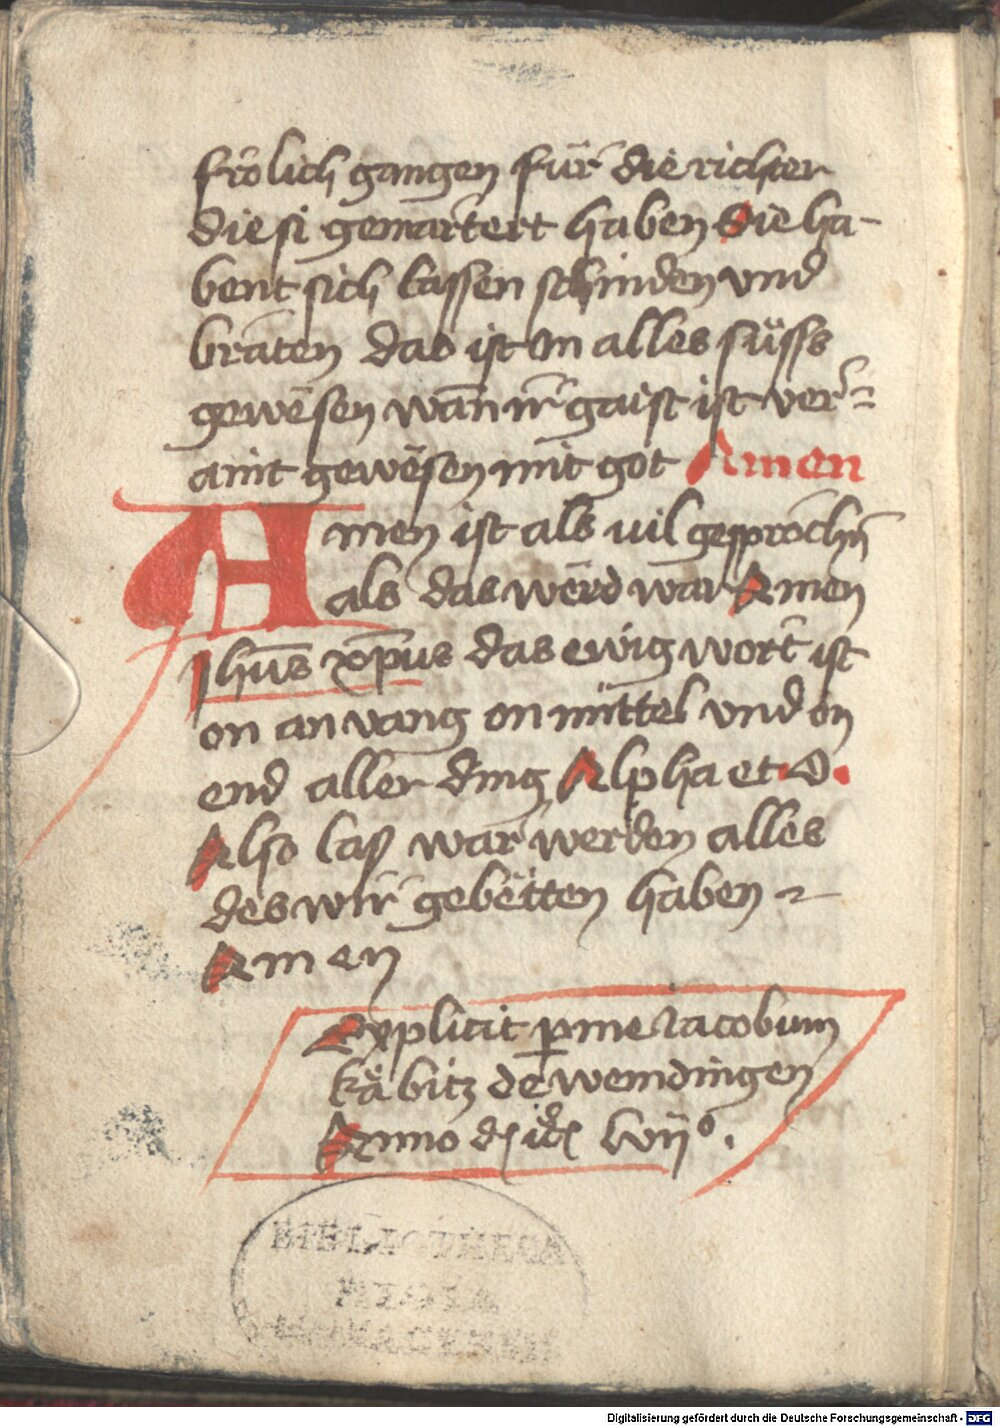 frölich gangen für die richter
die si gemartert haben Sie ha-
bent sich lassen schinden vnd
braten das ist in alles süss
gewesen wan ir gaist ist ver=
aint gewesen mit got Amen
Amen ist als uil gesprochn
als das werd war Amen
Jhus xpus das ewig wort ist
on anvang on mittel vnd on
end aller ding Alpha et O.
Also las war werden alles
des wir gebetten haben
Amen
Explicit p me Iacobum
käbitz de wemdingen
Anno lvij°.
BIBLIOTHECA
REGIA
MONACENSIS
Digitalisierung gefördert durch die Deutsche Forschungsgemeinschaft - DFG